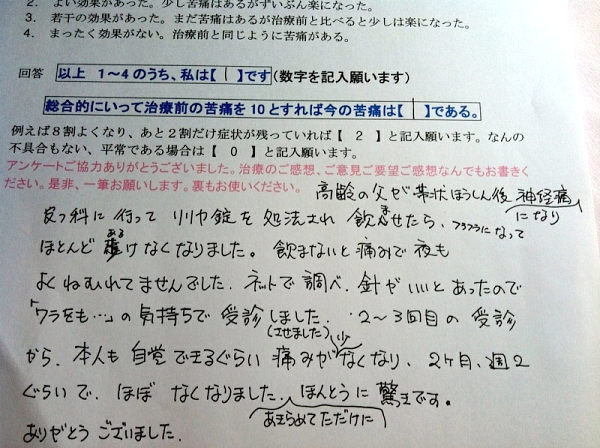 2. よい効果があった。少し苦痛はあるがずいぶん楽になった。
3. 若干の効果があった。まだ苦痛はあるが治療前と比べると少しは楽になった。
4. まったく効果がない。治療前と同じように苦痛がある。
回答 以上 1~4のうち、私は【 1 】です(数字を記入願います)
総合的にいって治療前の苦痛を10とすれば今の苦痛は【 1 】である。
例えば8割よくなり、あと2割だけ症状が残っていれば【 2 】と記入願います。なんの
不具合もない、平常である場合は【 0 】と記入願います。
アンケートご協力ありがとうございました。治療のご感想、ご意見ご要望ご感想なんでもお書きく
ださい。是非、一筆お願いします。裏もお使いください。
高齢の父が帯状ほうしん後神経痛
になり
皮フ科に行って リリカ錠を処法され 飲ませたら、フラフラになって
ほとんど あるけなくなりました。飲まないと痛みで夜も
よくねむれてませんでした。ネットで調べ、針がいいとあったので
「ワラをも…」の気持ちで受診しました。2~3回目の受診
(させました)
から、本人も自覚できるぐらい痛みが少なくなり、2ヶ月、週2
ぐらいで、ほぼ なくなりました。ほんとうに驚きです。
あきらめてただけに
ありがとうございました。